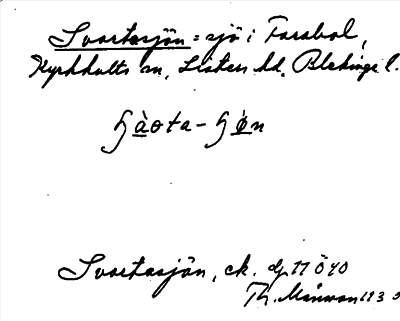 Svartasjön = sjö i Farabol,
Kyrkhults sn, Listers hd, Blekinge l.
Svartasjön, ek. dj 11 Ö 40
Th. Månsson 1930